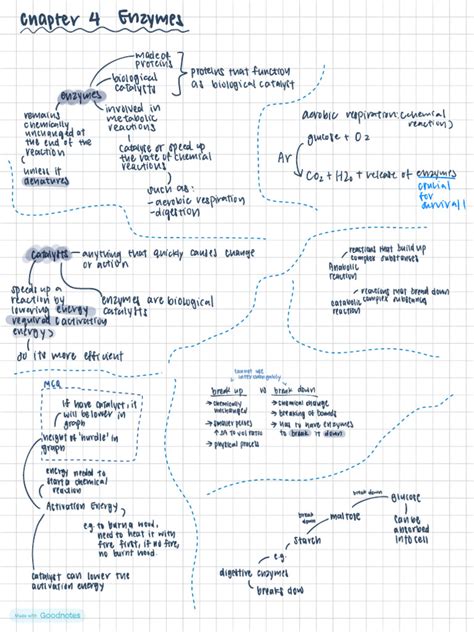 Chapter 4 Enzymes
made of
proteins
biological
catalysts
proteins that function
as biological catalyst
enzymes
remains
chemically
unchanged at
the end of the
reaction
unless it
denatures
involved in
metabolic
reactions
catalyse or speed up
the rate of chemical
reactions
such as:
- aerobic respiration
- digestion
aerobic respiration: (chemical
reaction)
glucose + O2
CO2 + H2O + release of enzymes
crucial
for
survival!
catalysts
- anything that quickly causes change
or action
speeds up a
reaction by
lowering energy
required (activation
energy)
enzymes are biological
catalysts
so its more efficient
reactions that build up
complex substances
Anabolic
reaction
reactions that break down
complex substances
catabolic
reaction
MCQ
if have catalyst, it
will be lower in
graph
height of 'hurdle' in
graph
energy needed to
start a chemical
reaction
Activation Energy
e.g. to burn a wood,
need to heat it with
fire first, if no fire,
no burnt wood.
catalyst can lower the
activation energy
cannot use
interchangeably
break up vs break down
→ chemically
unchanged
→ smaller pieces
↑ SA to vol ratio
→ physical process
→ chemical change
→ breaking of bonds
→ has to have enzymes
to break it down
Glucose
break down
maltose
break
down
starch
can be
absorbed
into cell
e.g.
digestive enzymes
breaks down
Made with Goodnotes